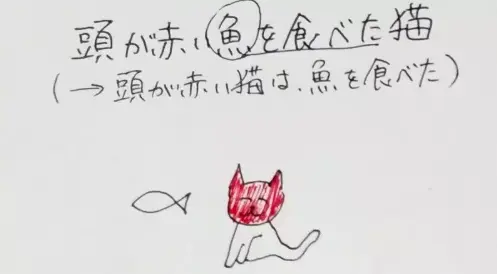 頭が赤い魚を食べた猫
(→頭が赤い猫は、魚を食べた)